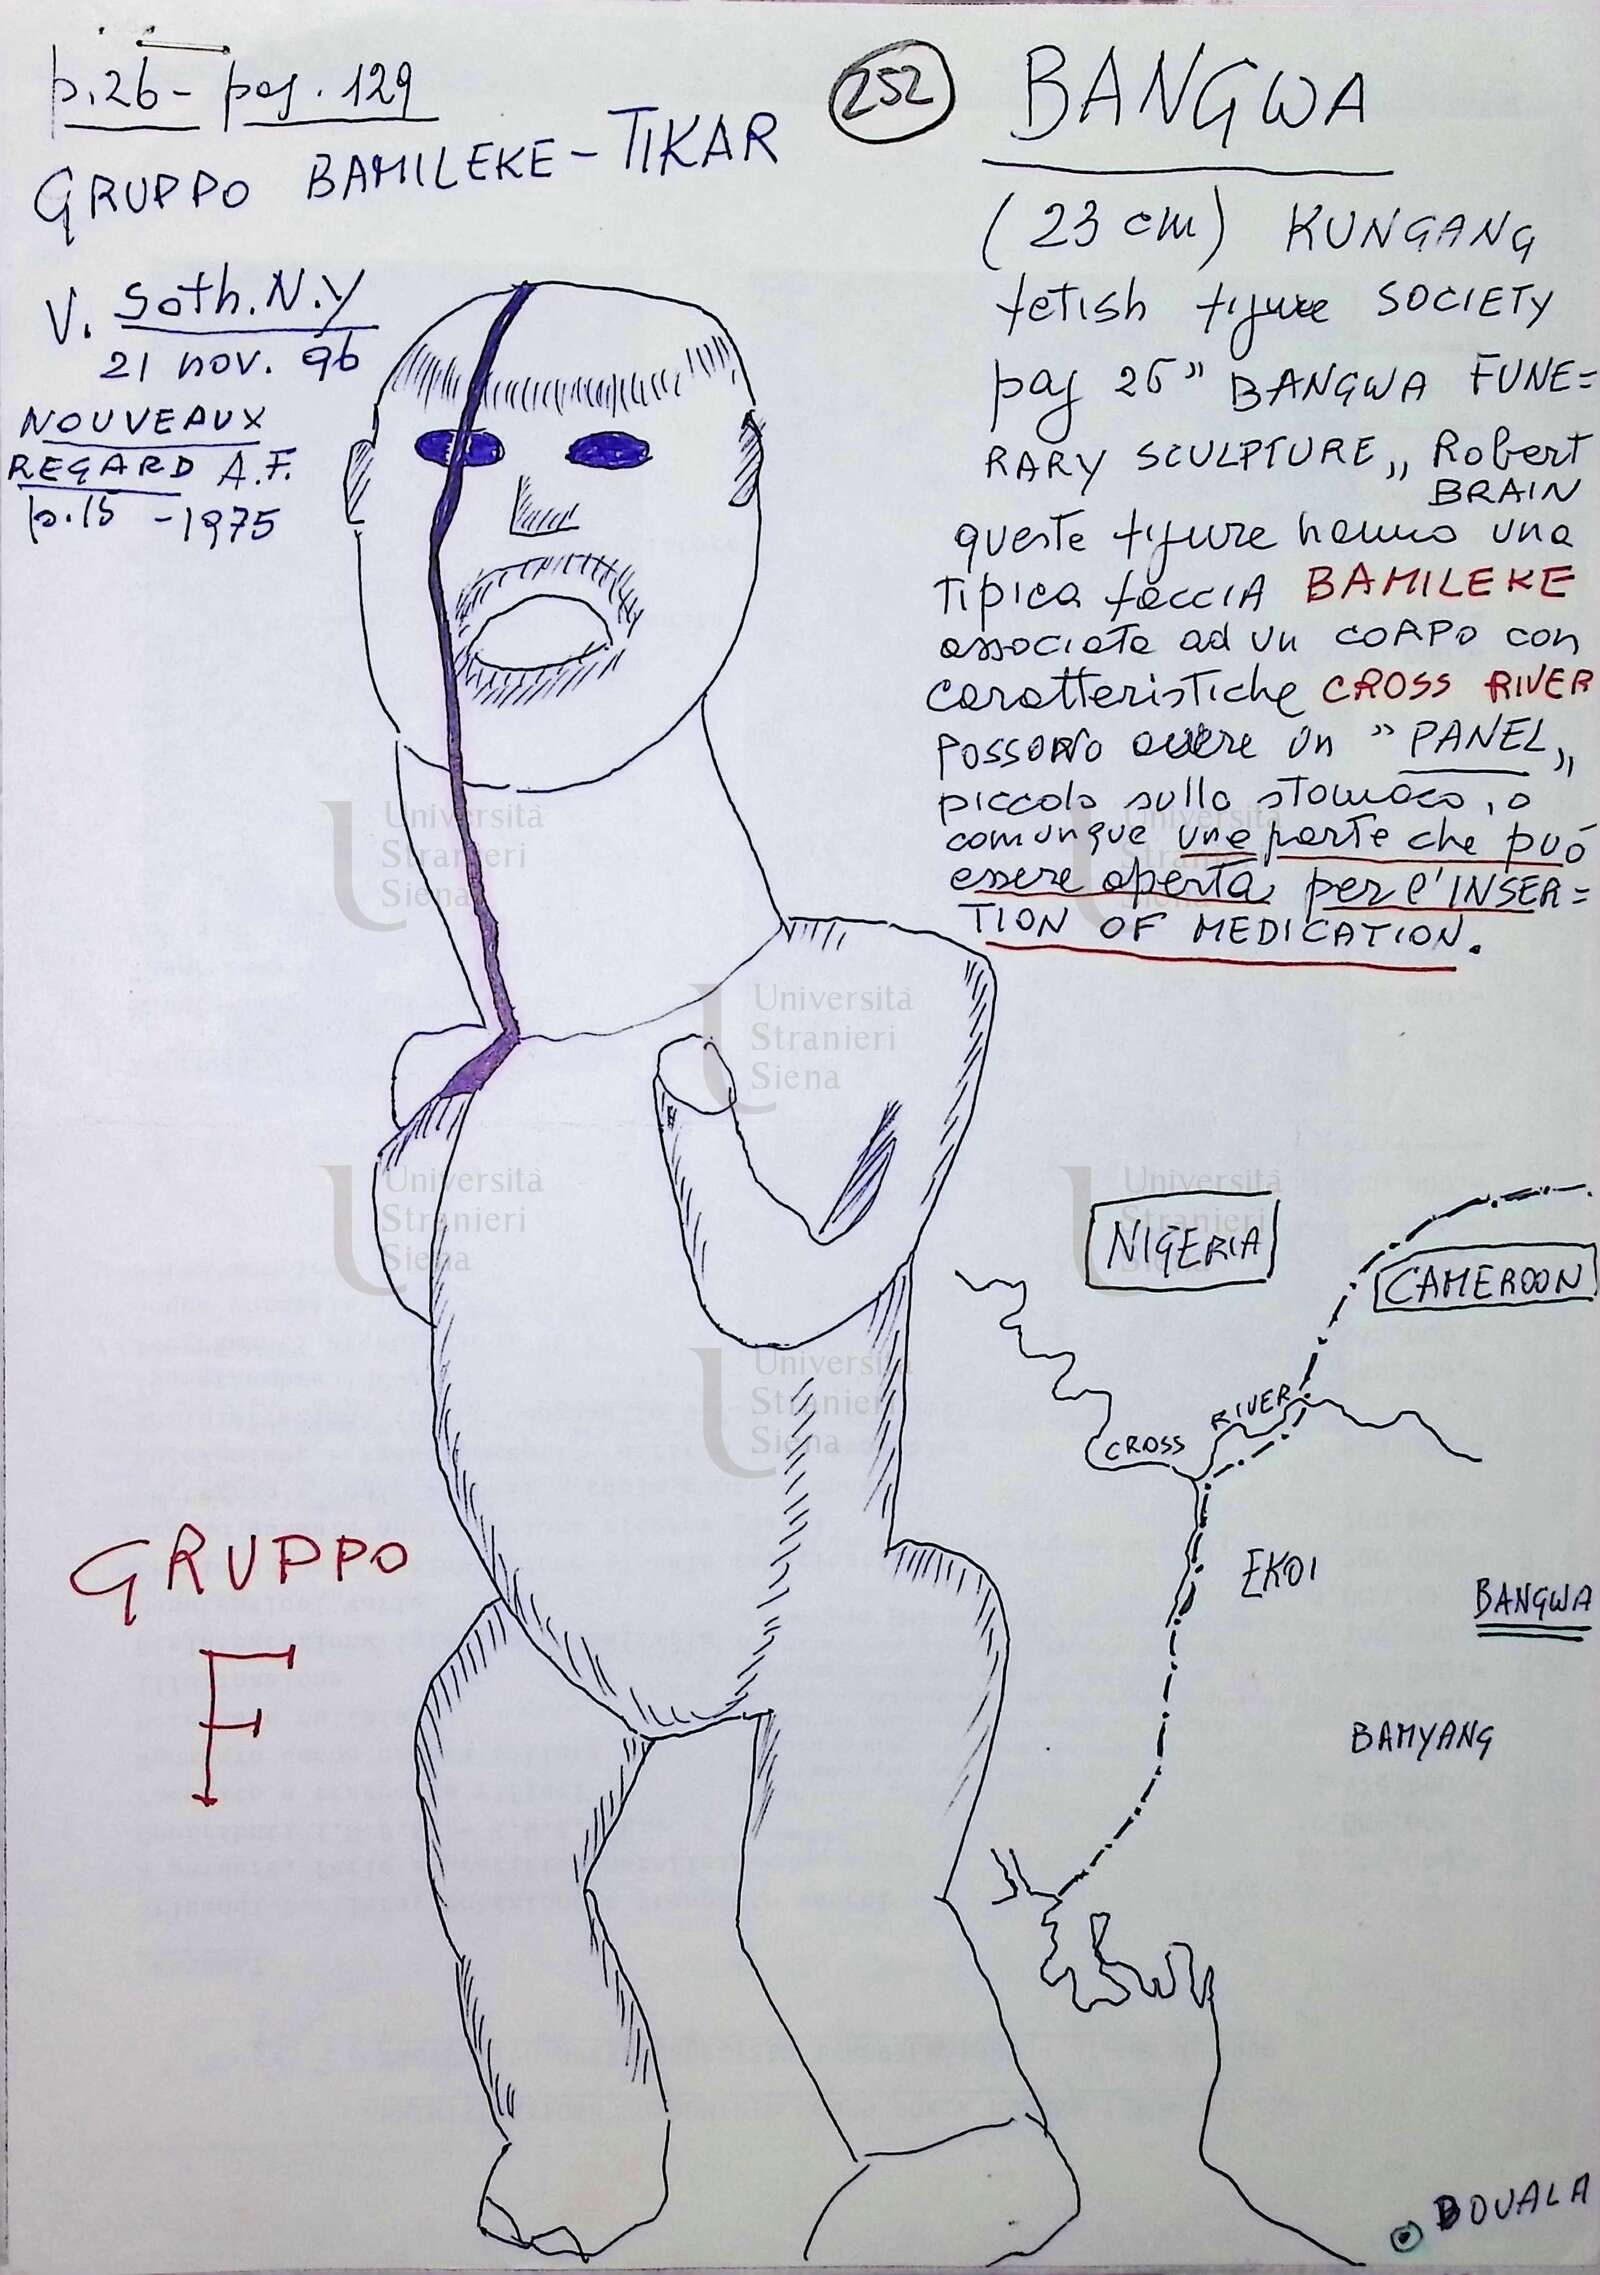 p.26 - pag. 129
GRUPPO BAMILEKE - TIKAR
V. Soth. N.Y
21 nov. 96
NOUVEAUX
REGARD A.F.
p.15 - 1975
252
BANGWA
(23 cm) KUNGANG
fetish figure SOCIETY
pag 26 " BANGWA FUNE=
RARY SCULPTURE,, Robert
BRAIN
queste figure hanno una
Tipica faccia BAMILEKE
associata ad un CORPO con
caratteristiche CROSS RIVER
POSSONO avere un " PANEL,,
piccolo sullo stomaco, o
comunque una parte che può
essere aperta per l'INSER=
TION OF MEDICATION.
Università
Stranieri
Siena
Università
Stranieri
Siena
Università
Stranieri
Siena
Università
Stranieri
Siena
Università
Stranieri
Siena
Università
Stranieri
Siena
NIGERIA
CAMEROON
CROSS RIVER
EKOI
BANGWA
BAMYANG
DOUALA
GRUPPO
F